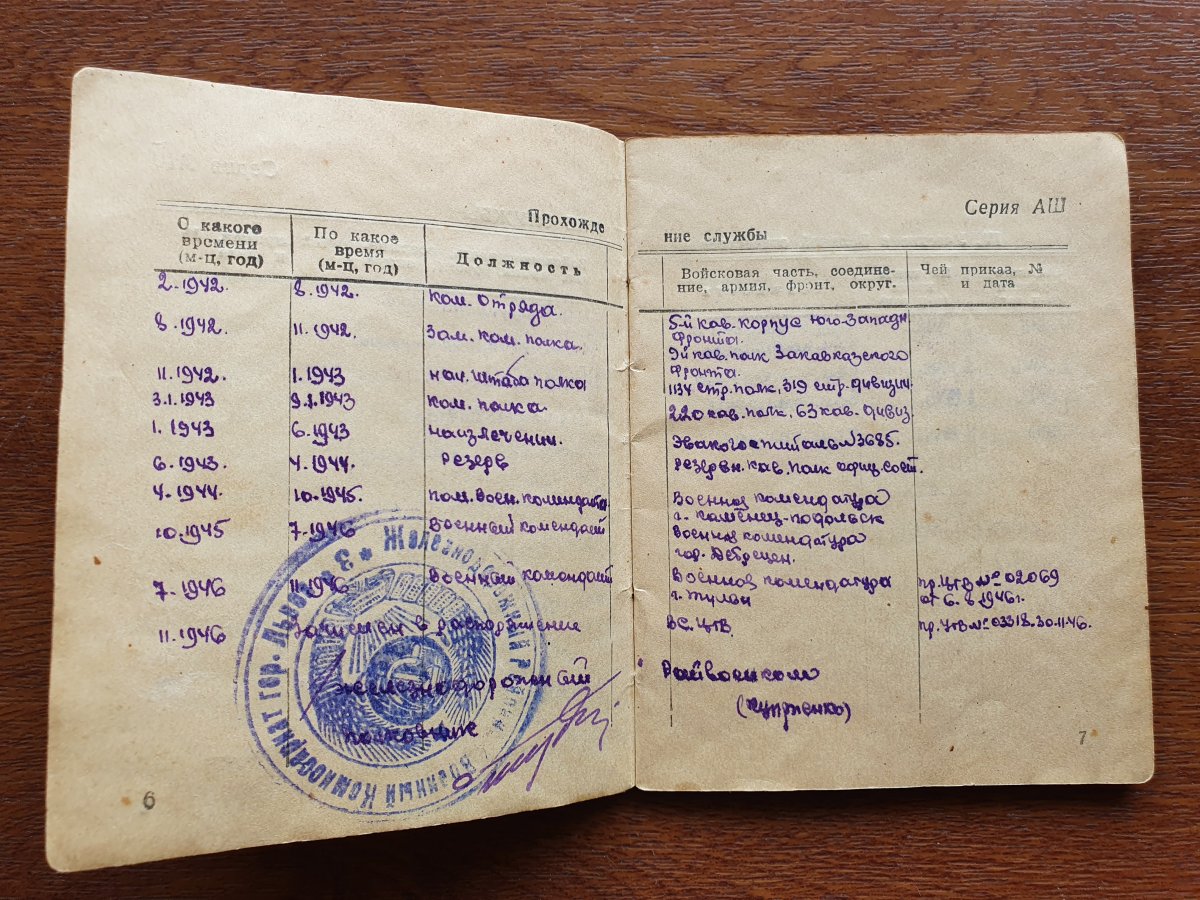 Прохожде
С какого времени (м-ц, год)
По какое время (м-ц, год)
Должность
2.1942. 8.1942. ком. отряда.
8.1942. 11.1942. Зам. ком. полка.
11.1942. 1.1943 нач. штаба полка
3.1.1943 9.1.1943 ком. полка.
1.1943 6.1943 наизлечении.
6.1943. 4.1944. Резерв
4.1944. 10.1945. пом. воен. коменданта
10.1945 7.1946 военный комендант
7.1946 11.1946 военный комендант
11.1946 Зачислен в распоряжение
железнодорожный
полковник
Военный Комиссариат гор. Львова * Железнодорожный
6
Серия АШ
ние службы
Войсковая часть, соедине-
ние, армия, фронт, округ.
Чей приказ, №
и дата
5-й кав. корпус Юго-Западн
фронта.
9й кав. полк Закавказского
фронта.
1134 стр. полк, 319 стр. дивизии.
220 кав. полк, 63 кав. дивиз.
Эвакогоспиталь №3685.
Резервн. кав. полк офиц. сост.
Военная комендатура
г. Каменец-Подольск
Военная комендатура
гор. Дебрецен.
Военная комендатура пр. ЦГВ № 02069
г. от 6.8.1946г.
ВС. ЦГВ. пр. ЦГВ № 03318.30.11.46.
Райвоенком
7